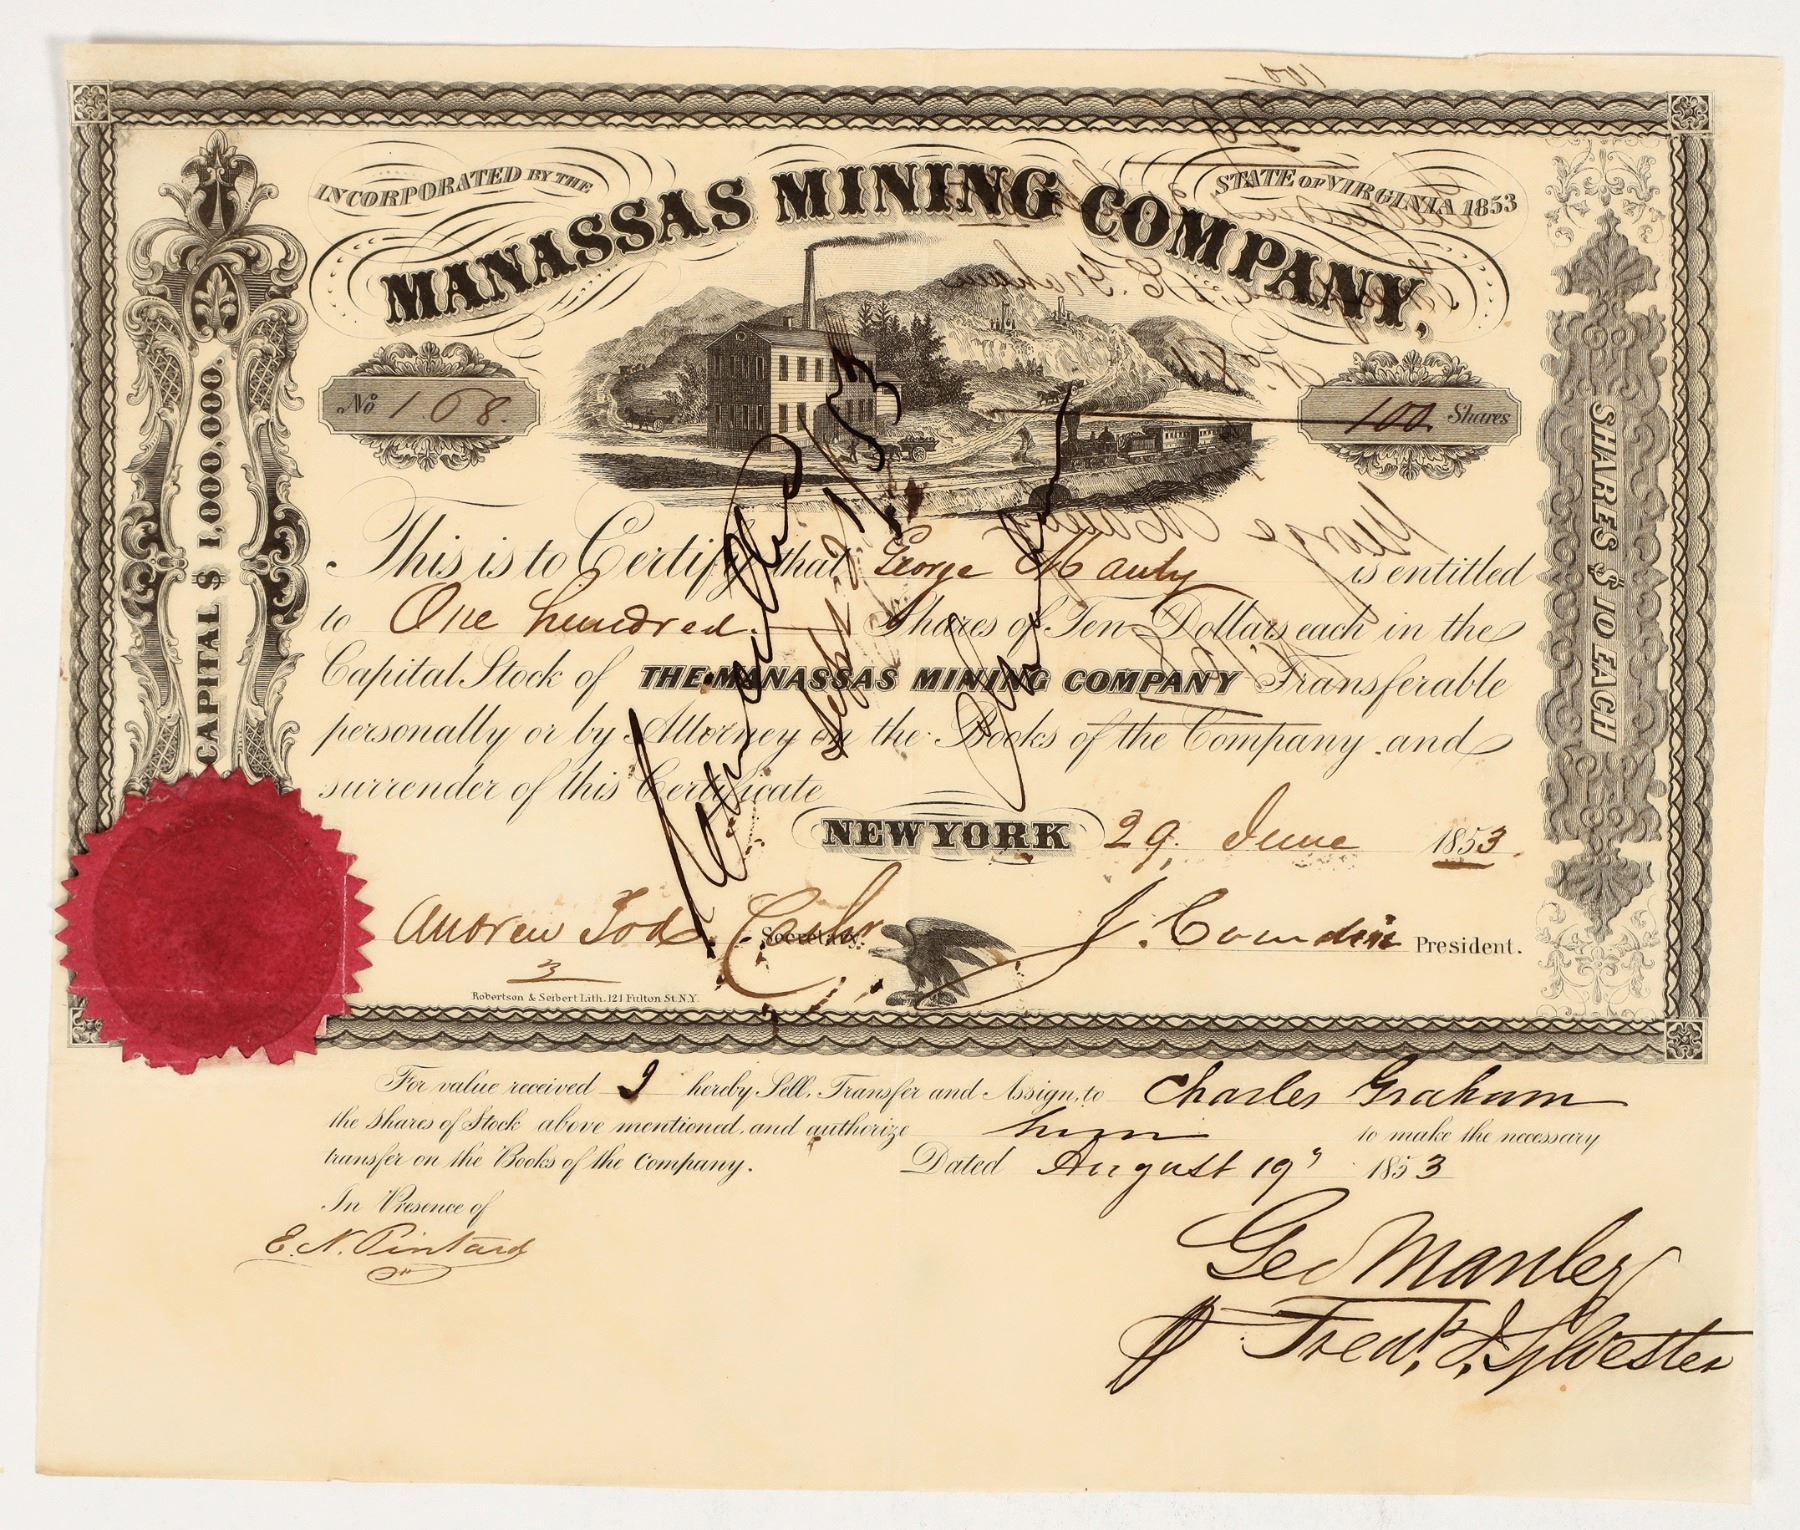 INCORPORATED BY THE
STATE OF VIRGINIA 1853
MANASSAS MINING COMPANY,
No 168.
100 Shares
CAPITAL $ 1,000,000,
SHARES $ 10 EACH
This is to Certify that George Manly is entitled
to One hundred Shares of Ten Dollars each in the
Capital Stock of THE MANASSAS MINING COMPANY Transferable
personally or by Attorney on the Books of the Company and
surrender of this Certificate
Cancelled
Sept 2 1853
NEW YORK 29 June 1853.
Andrew Secretary.
J. President.
Robertson & Seibert Lith. 121 Fulton St. N.Y.
For value received I hereby Sell, Transfer and Assign, to Charles Graham
the shares of Stock above mentioned, and authorize him to make the necessary
transfer on the Books of the Company. Dated August 19 1853
In Presence of
E. N. Pintard
Geo Manley
Fredk. J. Sylvester